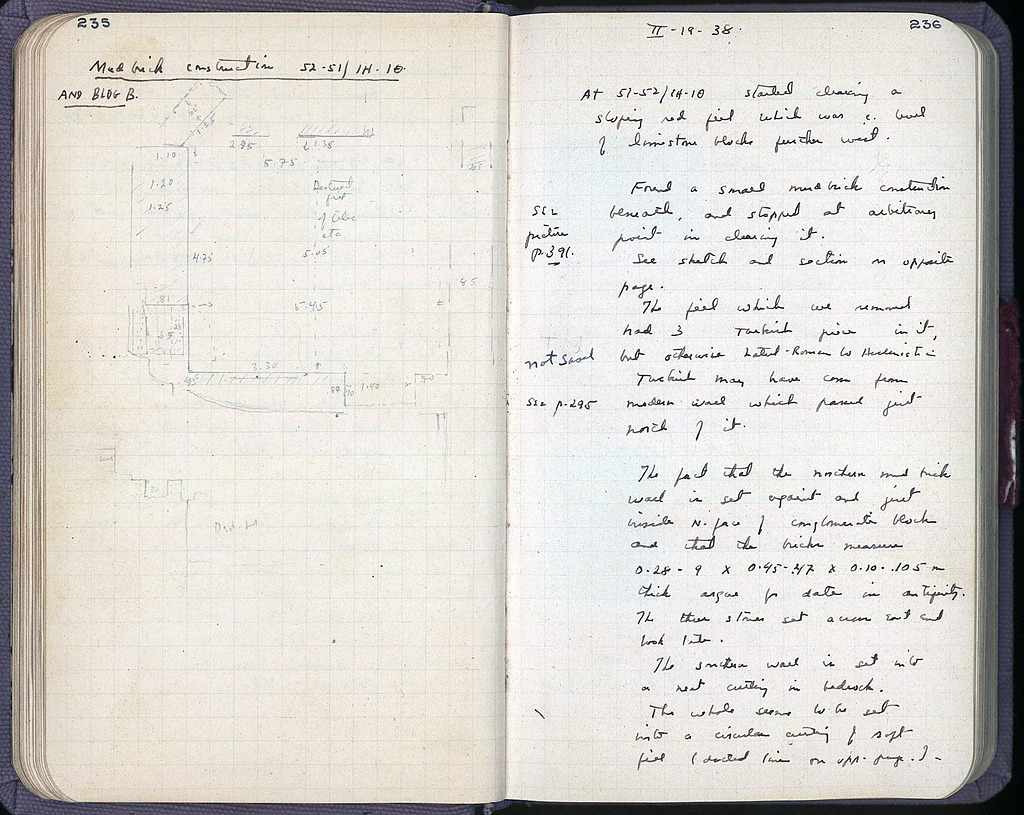 235
Mud brick construction 52-51/IH-IΘ
AND BLDG B.
1.10
2.95
1.35
5.75
1.20
1.25
Destroyed
fill
of
etc
5.05
4.75
85
.81
5.45
3.30
1.40
236
II-19-38.
At 51-52/IH-IΘ started clearing a
sloping red fill which was c. level
of limestone blocks further west.
Found a small mudbrick construction
See
beneath, and stopped at arbitrary
picture
p. 391.
point in clearing it.
See sketch and section on opposite
page.
The fill which we removed
had 3 Turkish pieces in it,
not saved
but otherwise Latest-Roman to Hellenistic
Turkish may have come from
See p. 295
modern wall which passed just
north of it.
The fact that the northern mud brick
wall is set against and just
inside N. face of conglomerate block
and that the bricks measure
0.28-9 x 0.45-.47 x 0.10-.105 m
thick argue for date in antiquity.
The three stones set across East end
look late.
The southern wall is set into
a neat cutting in bedrock.
The whole seems to be set
into a circular cutting of soft
fill (dotted line on opp. page.) -